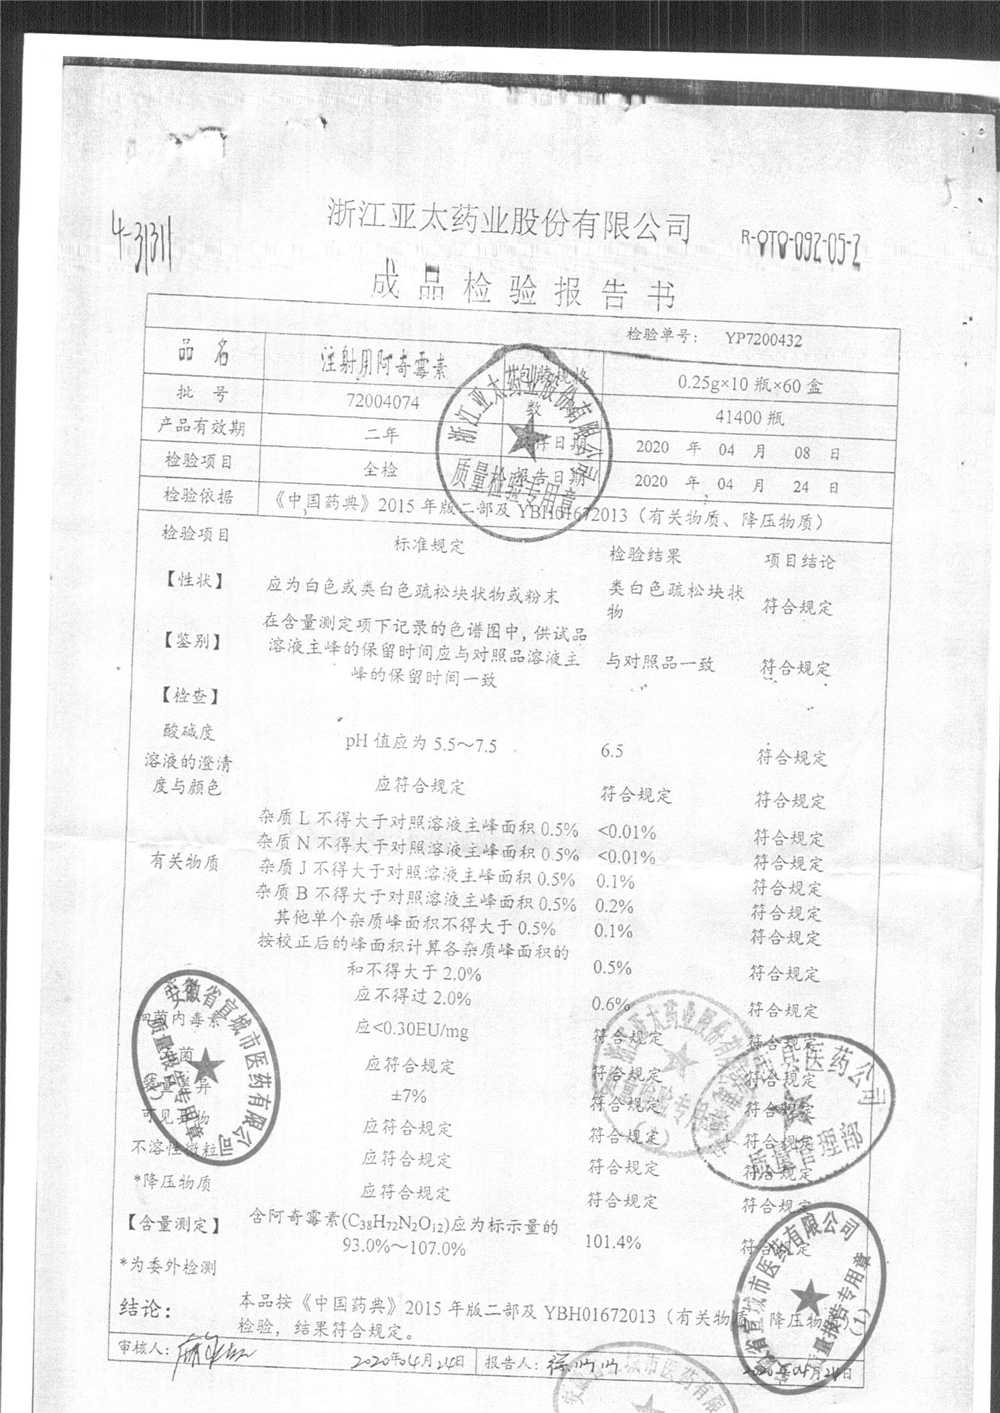 浙江亚太药业股份有限公司
4-31311
R-QTQ-092-05-2
成品检验报告书
检验单号： YP7200432
品 名 注射用阿奇霉素 0.25g×10 瓶×60 盒
批 号 72004074 数 41400 瓶
产品有效期 二年 日期 2020 年 04 月 08 日
检验项目 全检 报告日期 2020 年 04 月 24 日
检验依据 《中国药典》2015 年版二部及 YBH01672013（有关物质、降压物质）
检验项目 标准规定 检验结果 项目结论
【性状】 应为白色或类白色疏松块状物或粉末 类白色疏松块状物 符合规定
【鉴别】 在含量测定项下记录的色谱图中，供试品
溶液主峰的保留时间应与对照品溶液主 与对照品一致 符合规定
峰的保留时间一致
【检查】
酸碱度 pH 值应为 5.5～7.5 6.5 符合规定
溶液的澄清
度与颜色 应符合规定 符合规定 符合规定
杂质 L 不得大于对照溶液主峰面积 0.5% <0.01% 符合规定
杂质 N 不得大于对照溶液主峰面积 0.5% <0.01% 符合规定
有关物质 杂质 J 不得大于对照溶液主峰面积 0.5% 0.1% 符合规定
杂质 B 不得大于对照溶液主峰面积 0.5% 0.2% 符合规定
其他单个杂质峰面积不得大于 0.5% 0.1% 符合规定
按校正后的峰面积计算各杂质峰面积的
和不得大于 2.0% 0.5% 符合规定
应不得过 2.0% 0.6% 符合规定
菌内毒素 应<0.30EU/mg 符合规定 符合规定
菌 应符合规定 符合规定 符合规定
异 ±7% 符合规定 符合规定
可见异物 应符合规定 符合规定 符合规定
不溶性微粒 应符合规定 符合规定 符合规定
*降压物质 应符合规定 符合规定 符合规定
【含量测定】 含阿奇霉素(C38H72N2O12)应为标示量的
93.0%～107.0% 101.4% 符合规定
*为委外检测
结论： 本品按《中国药典》2015 年版二部及 YBH01672013（有关物质、降压物质）
检验，结果符合规定。
审核人： 2020年04月24日 报告人： 2020年04月24日
浙江亚太药业股份有限公司
质量检验专用章
安徽省宣城市医药有限公司
质量报告专用章
浙江亚太药业股份有限公司
医药公司
质量管理部
安徽省宣城市医药有限公司
质量报告专用章
(1)